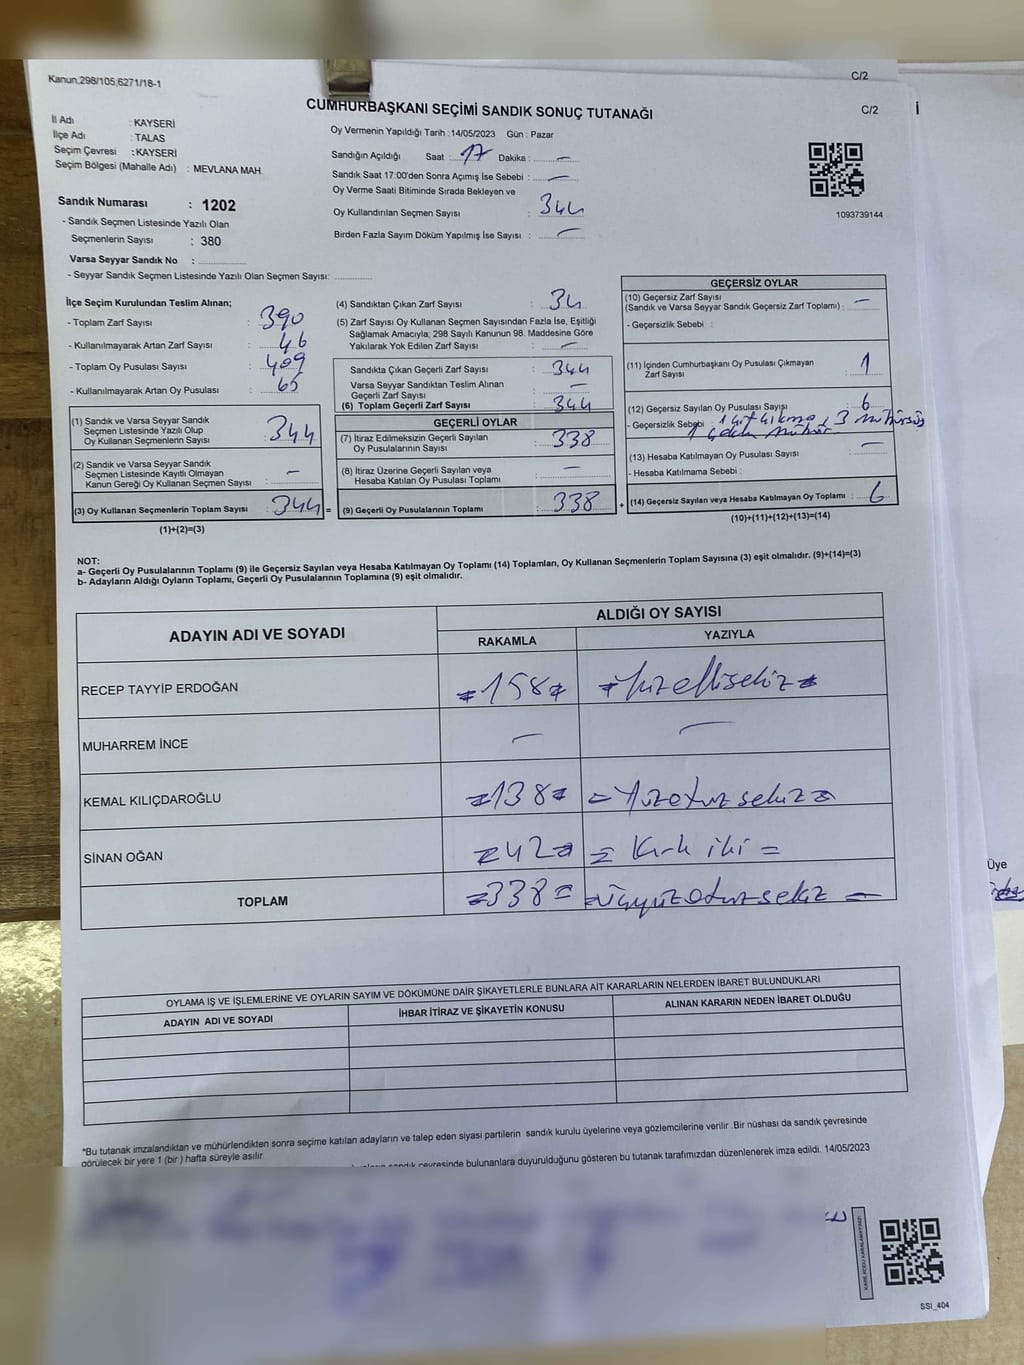 Kanun;298/105;6271/18-1
C/2
C/2
CUMHURBAŞKANI SEÇİMİ SANDIK SONUÇ TUTANAĞI
İl Adı : KAYSERİ
İlçe Adı : TALAS
Seçim Çevresi : KAYSERİ
Seçim Bölgesi (Mahalle Adı) : MEVLANA MAH.
Oy Vermenin Yapıldığı Tarih : 14/05/2023 Gün : Pazar
Sandığın Açıldığı Saat : 17 Dakika : —
Sandık Saat 17:00'den Sonra Açımış İse Sebebi : —
Oy Verme Saati Bitiminde Sırada Bekleyen ve
Oy Kullandırılan Seçmen Sayısı : 344
Birden Fazla Sayım Döküm Yapılmış İse Sayısı : —
1093739144
Sandık Numarası : 1202
- Sandık Seçmen Listesinde Yazılı Olan
Seçmenlerin Sayısı : 380
Varsa Seyyar Sandık No :
- Seyyar Sandık Seçmen Listesinde Yazılı Olan Seçmen Sayısı:
İlçe Seçim Kurulundan Teslim Alınan;
- Toplam Zarf Sayısı : 390
- Kullanılmayarak Artan Zarf Sayısı : 46
- Toplam Oy Pusulası Sayısı : 409
- Kullanılmayarak Artan Oy Pusulası : 65
(1) Sandık ve Varsa Seyyar Sandık
Seçmen Listesinde Yazılı Olup
Oy Kullanan Seçmenlerin Sayısı : 344
(2) Sandık ve Varsa Seyyar Sandık
Seçmen Listesinde Kayıtlı Olmayan
Kanun Gereği Oy Kullanan Seçmen Sayısı : —
(3) Oy Kullanan Seçmenlerin Toplam Sayısı : 344 =
(1)+(2)=(3)
(4) Sandıktan Çıkan Zarf Sayısı : 34
(5) Zarf Sayısı Oy Kullanan Seçmen Sayısından Fazla İse, Eşitliği
Sağlamak Amacıyla; 298 Sayılı Kanunun 98. Maddesine Göre
Yakılarak Yok Edilen Zarf Sayısı : —
Sandıkta Çıkan Geçerli Zarf Sayısı : 344
Varsa Seyyar Sandıktan Teslim Alınan
Geçerli Zarf Sayısı : —
(6) Toplam Geçerli Zarf Sayısı : 344
GEÇERLİ OYLAR
(7) İtiraz Edilmeksizin Geçerli Sayılan
Oy Pusulalarının Sayısı : 338
(8) İtiraz Üzerine Geçerli Sayılan veya
Hesaba Katılan Oy Pusulası Toplamı : —
(9) Geçerli Oy Pusulalarının Toplamı : 338 +
GEÇERSİZ OYLAR
(10) Geçersiz Zarf Sayısı
(Sandık ve Varsa Seyyar Sandık Geçersiz Zarf Toplamı) : —
- Geçersizlik Sebebi :
(11) İçinden Cumhurbaşkanı Oy Pusulası Çıkmayan
Zarf Sayısı : 1
(12) Geçersiz Sayılan Oy Pusulası Sayısı : 6
- Geçersizlik Sebebi : 1 çift çıkma, 3 mühürsüz
(13) Hesaba Katılmayan Oy Pusulası Sayısı : —
- Hesaba Katılmama Sebebi :
(14) Geçersiz Sayılan veya Hesaba Katılmayan Oy Toplamı : 6
(10)+(11)+(12)+(13)=(14)
NOT:
a- Geçerli Oy Pusulalarının Toplamı (9) ile Geçersiz Sayılan veya Hesaba Katılmayan Oy Toplamı (14) Toplamları, Oy Kullanan Seçmenlerin Toplam Sayısına (3) eşit olmalıdır. (9)+(14)=(3)
b- Adayların Aldığı Oyların Toplamı, Geçerli Oy Pusulalarının Toplamına (9) eşit olmalıdır.
ADAYIN ADI VE SOYADI ALDIĞI OY SAYISI
RAKAMLA YAZIYLA
RECEP TAYYİP ERDOĞAN =158= =Yüzellisekiz=
MUHARREM İNCE — —
KEMAL KILIÇDAROĞLU =138= =Yüzotuzsekiz=
SİNAN OĞAN =42= = Kırk iki =
TOPLAM =338= =üçyüzotuzsekiz =
OYLAMA İŞ VE İŞLEMLERİNE VE OYLARIN SAYIM VE DÖKÜMÜNE DAİR ŞİKAYETLERLE BUNLARA AİT KARARLARIN NELERDEN İBARET BULUNDUKLARI
ADAYIN ADI VE SOYADI İHBAR İTİRAZ VE ŞİKAYETİN KONUSU ALINAN KARARIN NEDEN İBARET OLDUĞU
*Bu tutanak imzalandıktan ve mühürlendikten sonra seçime katılan adayların ve talep eden siyasi partilerin sandık kurulu üyelerine veya gözlemcilerine verilir .Bir nüshası da sandık çevresinde
görülecek bir yere 1 (bir ) hafta süreyle asılır.
sandık çevresinde bulunanlara duyurulduğunu gösteren bu tutanak tarafımızdan düzenlenerek imza edildi. 14/05/2023
Üye
SSI_404